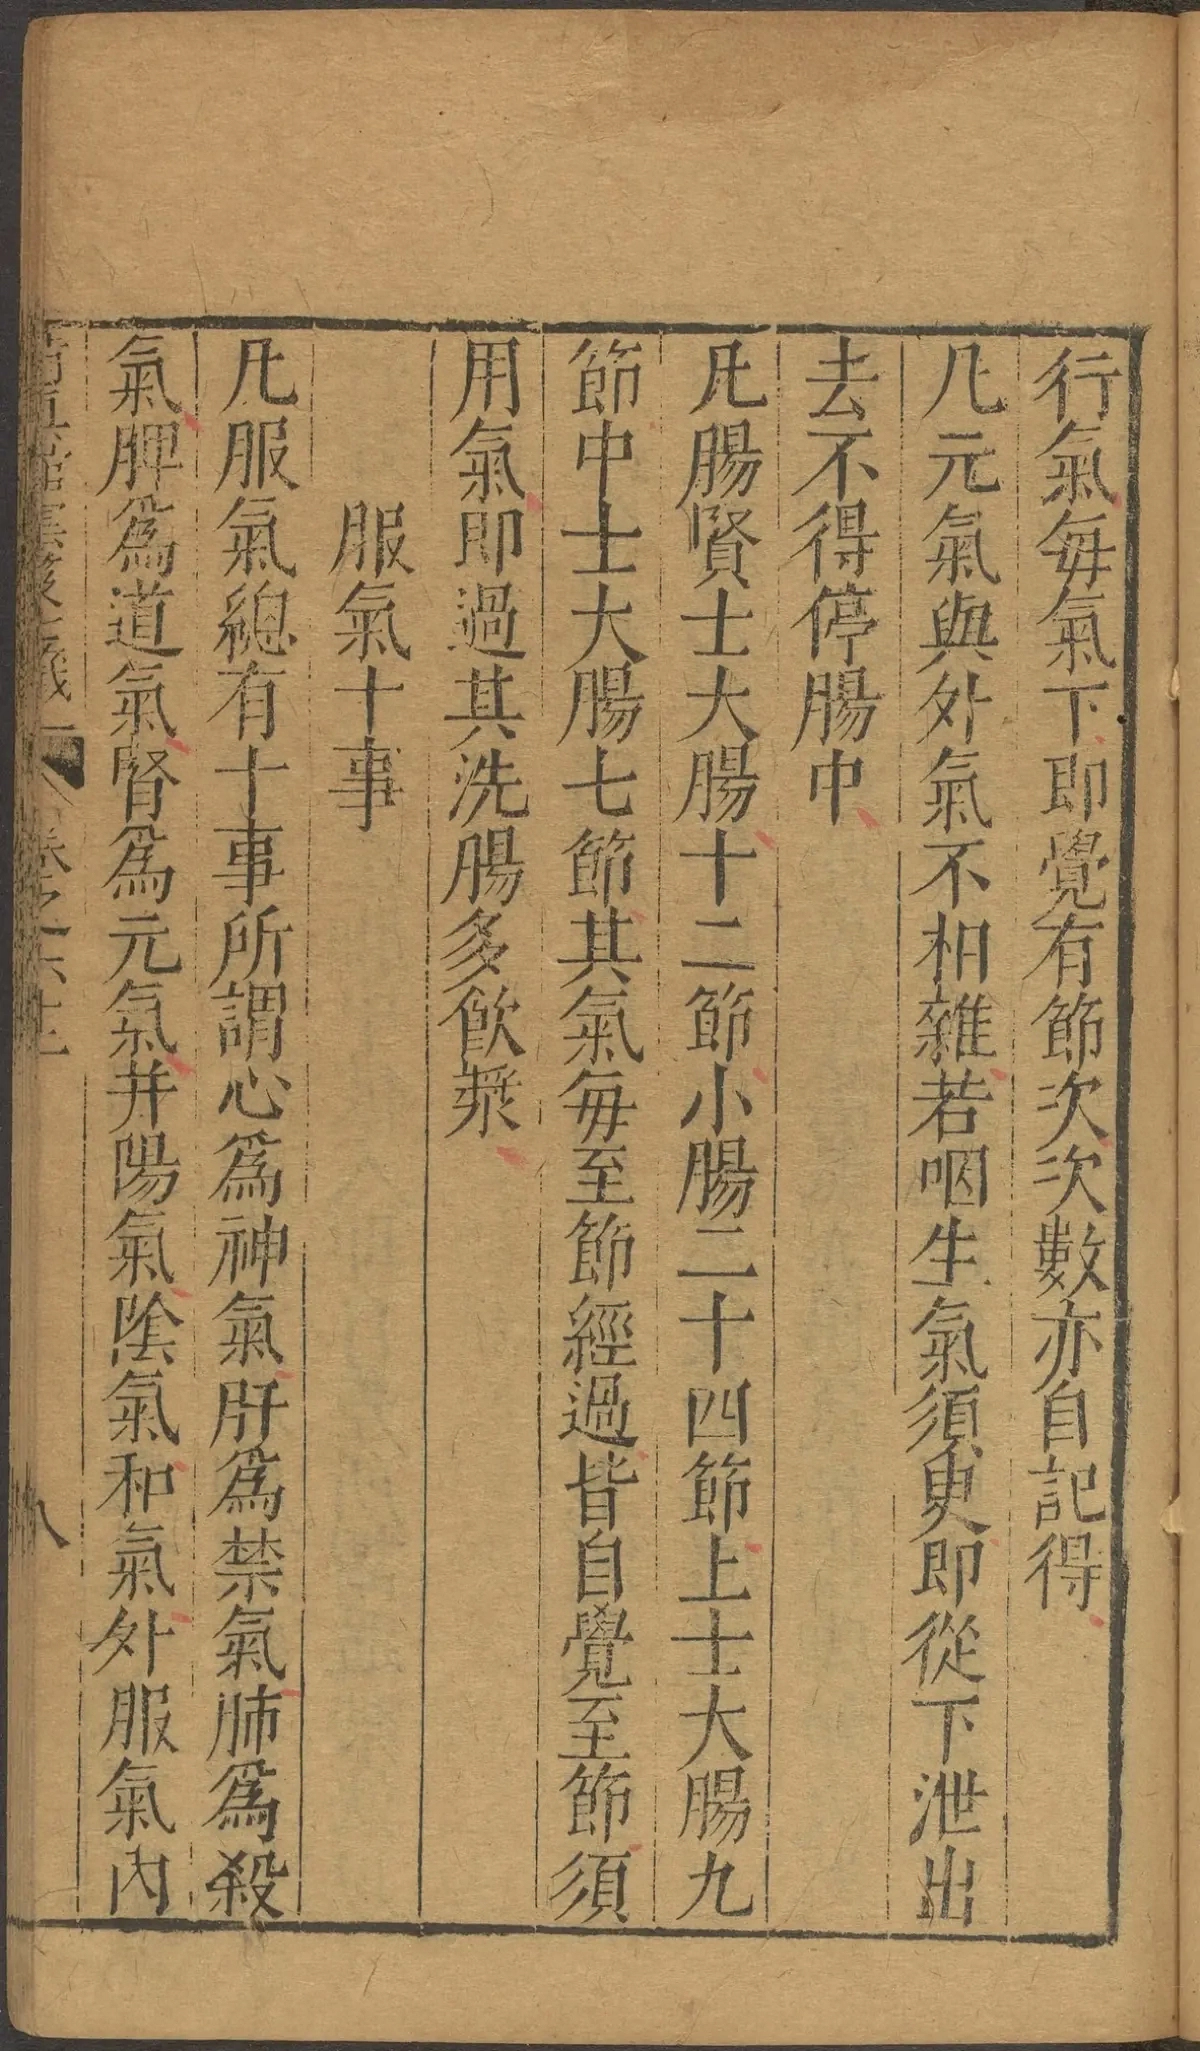 行氣每氣下即覺有節次次數亦自記得
凡元氣與外氣不相雜若咽生氣須臾即從下泄出
去不得停腸中
凡腸賢士大腸十二節小腸二十四節上士大腸九
節中士大腸七節其氣每至節經過皆自覺至節須
用氣即過其洗腸多飲漿
服氣十事
凡服氣總有十事所謂心爲神氣肝爲禁氣肺爲殺
氣脾爲道氣腎爲元氣并陽氣陰氣和氣外服氣內
卷之六十二 八